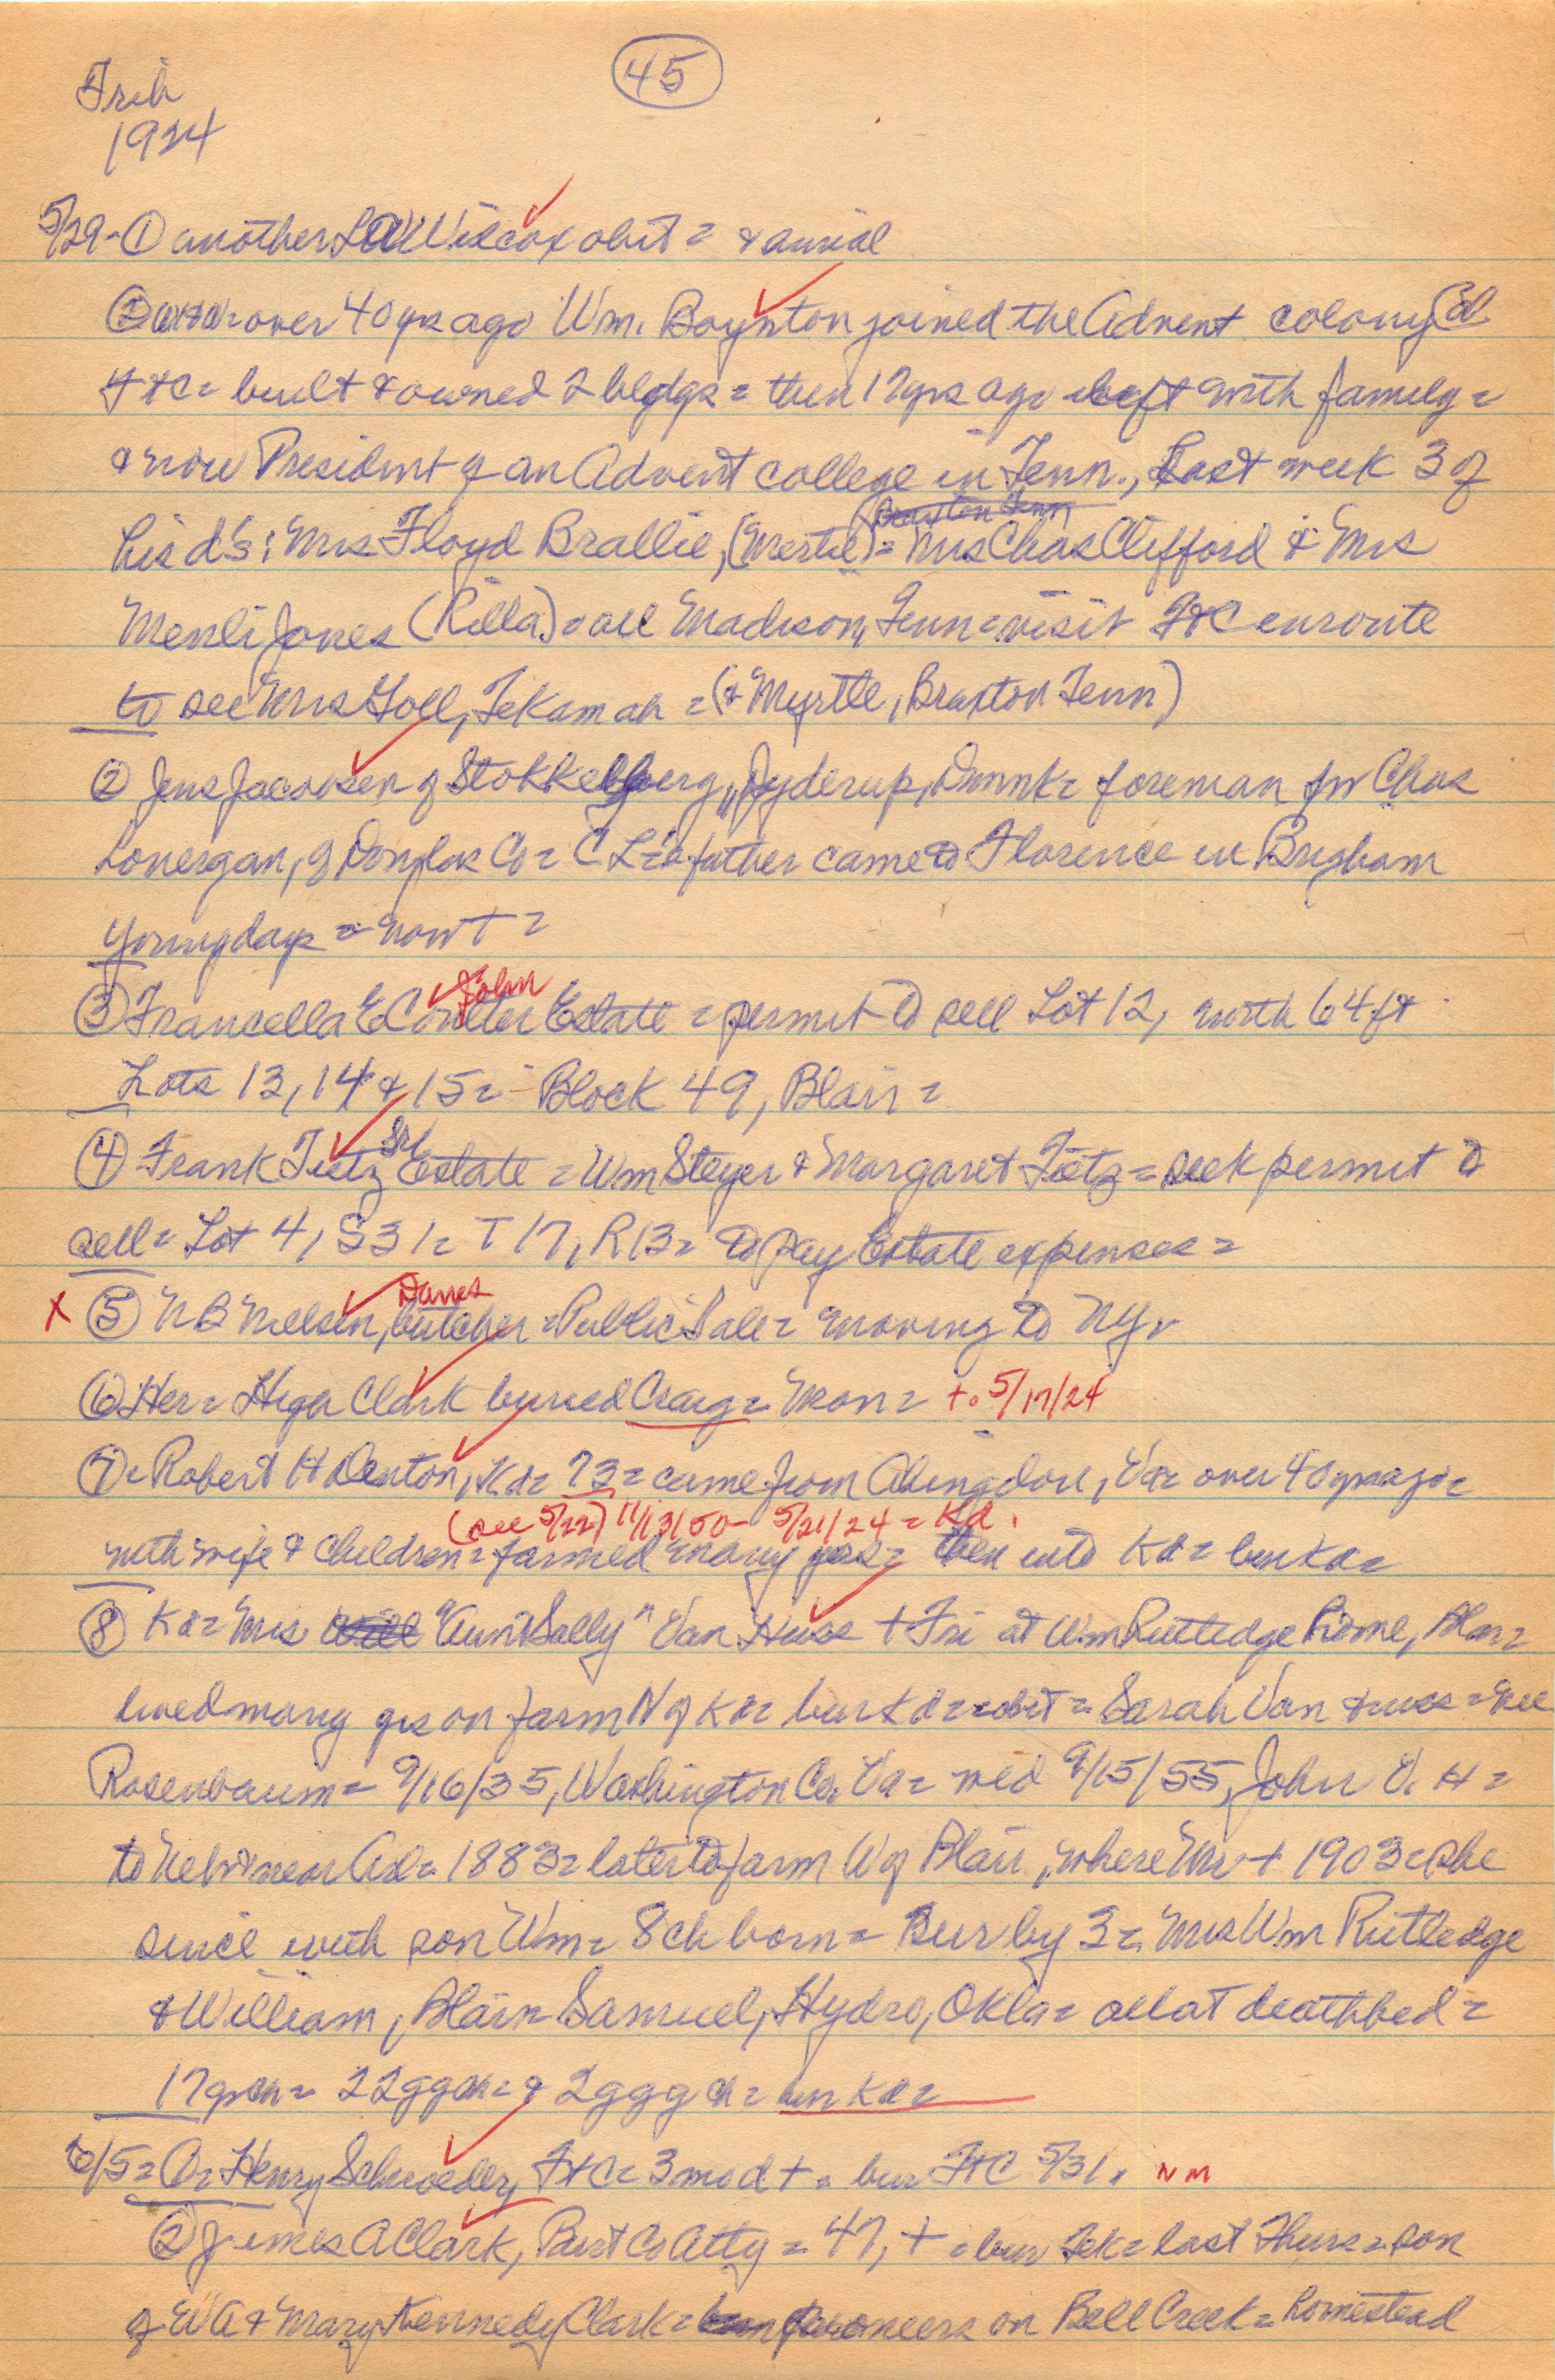 45
Trib
1924
5/29 - ① another L A Wilcox obit = & burial
② over 40 yrs ago Wm. Boynton joined the Advent colony @
FtC = built & owned 2 bldgs = then 17 yrs ago left with family =
& now President of an Advent college in Tenn., Last week 3 of
Braxton Tenn
his d's: Mrs Floyd Brallie, (Mertie) = Mrs Chas Clifford & Mrs
Menli Jones (Rilla) = all Madison, Tenn = visit FtC enroute
to see Mrs Goll, Tekamah = (& Myrtle, Braxton Tenn)
② Jens Jacobsen of Stokkelberg, Jyderup, Dnmk = foreman for Chas
Lonergan, of Douglas Co = C L's father came to Florence in Brigham
Young days = now + =
John
③ Francella E Coulter Estate = permit to sell Lot 12, north 64 ft
Lots 13, 14 & 15 = Block 49, Blair =
Sr
④ Frank Tietz Estate = Wm Steyer & Margaret Tietz = seek permit to
sell = Lot 4, S31 = T17, R13 = to pay Estate expenses =
Danes
X ⑤ N B Nielsen, butcher = Public Sale = moving to NY.
⑥ Her = Clark buried Craig = Mon = + . 5/17/24
⑦ = Robert H Denton, Kd = 73 = came from Abingdon, Va = over 40 yrs ago =
(see 5/22) 11/13/50 - 5/21/24 = Kd.
with wife & children = farmed many yrs = then into Kd = bur Kd =
⑧ Kd = Mrs "Aunt Sally" Van Huss + Fri at Wm Rutledge home, Blair =
lived many yrs on farm N of Kd = bur Kd = obit = Sarah Van Huss = nee
Rosenbaum = 9/16/35, Washington Co. Va = wed 9/15/55, John V. H =
to Nebr near = 1883 = later to farm W of Blair, where Mr + 1903 = she
since with son Wm = 8 ch born = Sur by 3 = Mrs Wm Rutledge
& William, Blair = Samuel, Hydro, Okla = all at deathbed =
17 grch = 22 ggch = & 2 ggg ch = bur Kd =
6/5 = ① = Henry Schroeder, FtC = 3 mo d + = bur FtC 5/31. NM
② James A Clark, Burt Co Atty = 47, + = bur Tek = last Thurs = son
of W A & Mary Kennedy Clark = pioneers on Bell Creek = homestead